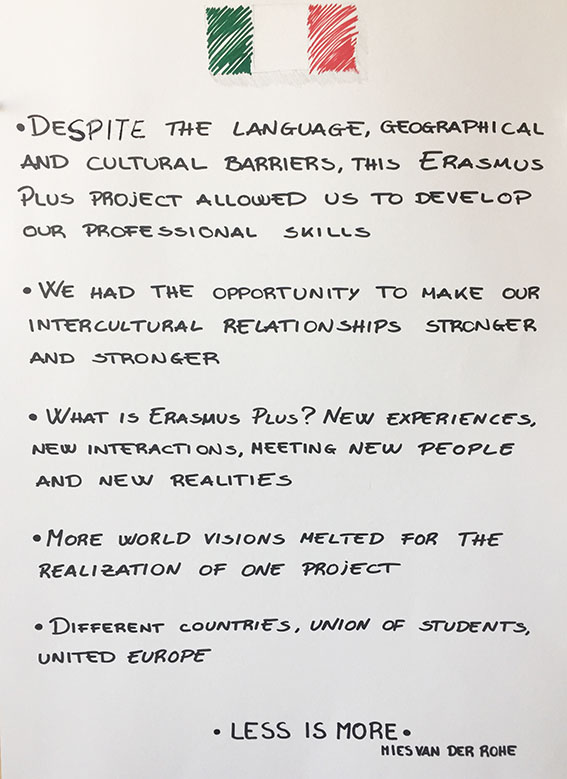 • DESPITE THE LANGUAGE, GEOGRAPHICAL
AND CULTURAL BARRIERS, THIS ERASMUS
PLUS PROJECT ALLOWED US TO DEVELOP
OUR PROFESSIONAL SKILLS
• WE HAD THE OPPORTUNITY TO MAKE OUR
INTERCULTURAL RELATIONSHIPS STRONGER
AND STRONGER
• WHAT IS ERASMUS PLUS? NEW EXPERIENCES,
NEW INTERACTIONS, MEETING NEW PEOPLE
AND NEW REALITIES
• MORE WORLD VISIONS MELTED FOR THE
REALIZATION OF ONE PROJECT
• DIFFERENT COUNTRIES, UNION OF STUDENTS,
UNITED EUROPE
• LESS IS MORE •
MIES VAN DER ROHE